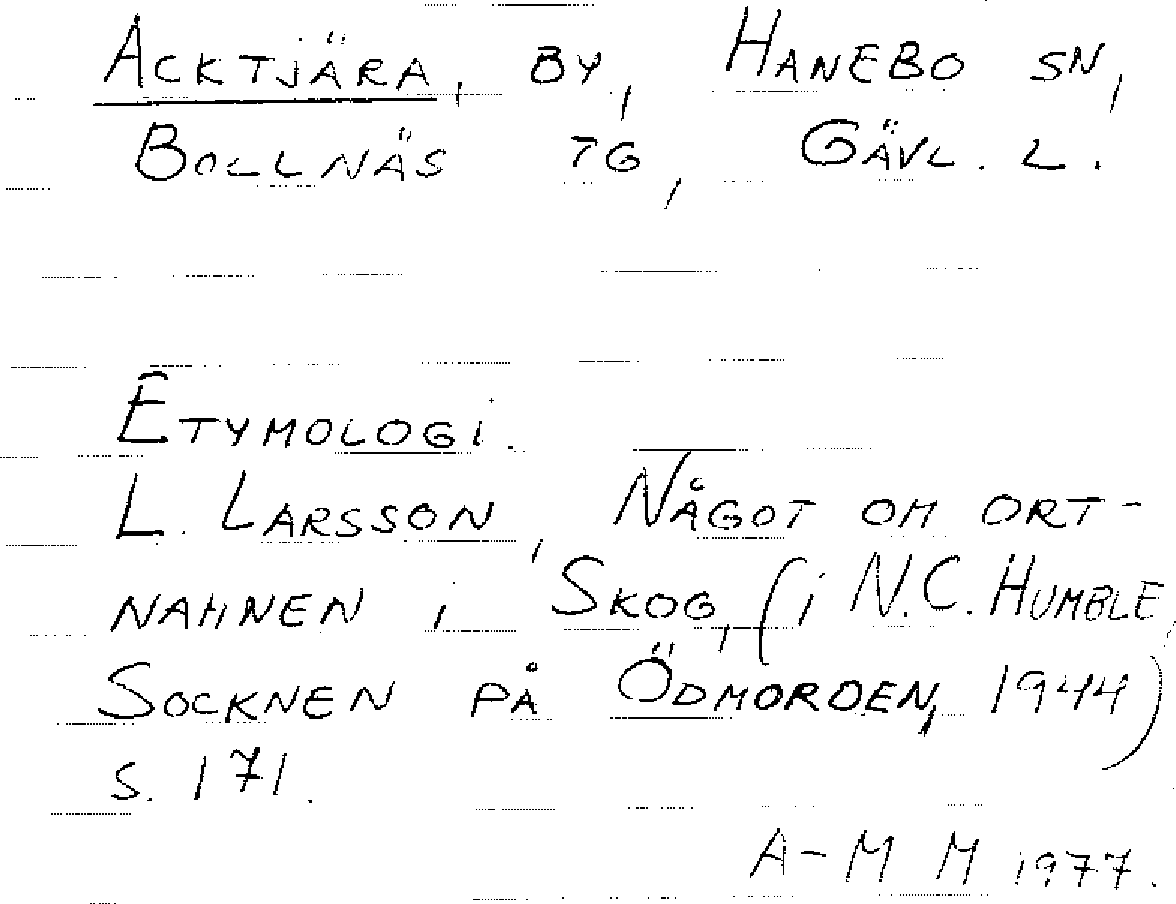 Acktjära, by, Hanebo sn,
Bollnäs tg, Gävl. l.
Etymologi.
L. Larsson, Något om ort-
namnen i Skog, (i N.C. Humble,
Socknen på Ödmorden, 1944)
s. 171.
A-M M 1977.